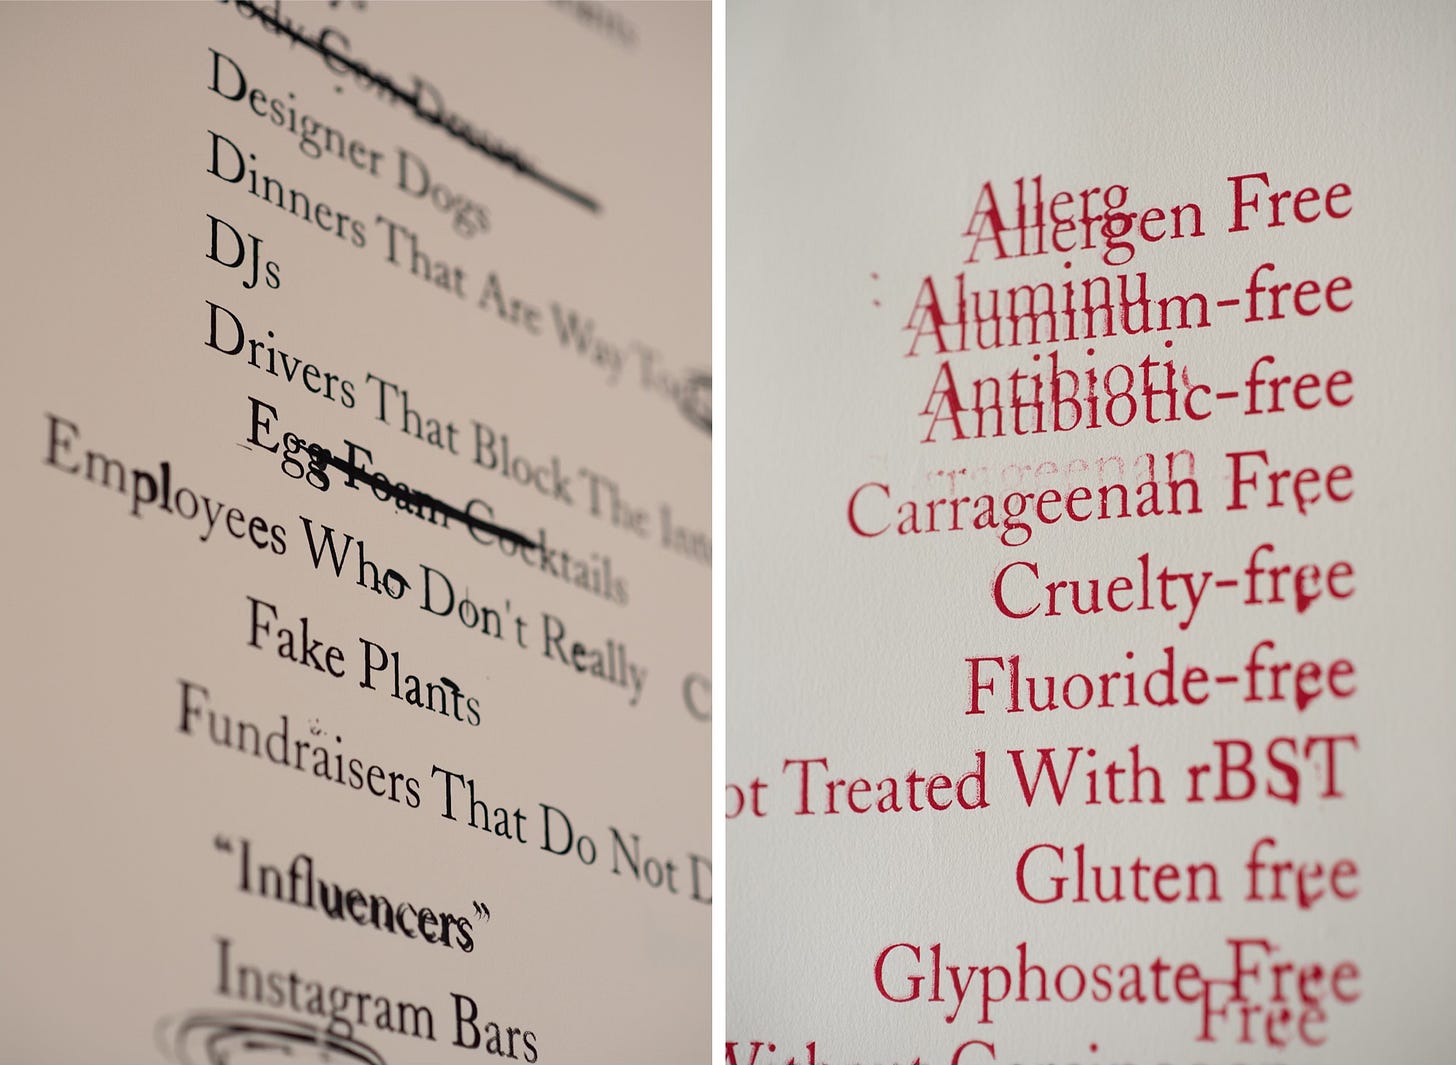 Designer Dogs
Dinners That Are Way Too
DJs
Drivers That Block The
Egg Foam Cocktails
Employees Who Don't Really
Fake Plants
Fundraisers That Do Not
“Influencers”
Instagram Bars
Allerg
Allergen Free
Aluminu
Aluminum-free
Antibioti
Antibiotic-free
Carrageenan Free
Cruelty-free
Fluoride-free
ot Treated With rBST
Gluten free
Glyphosate Free
Free